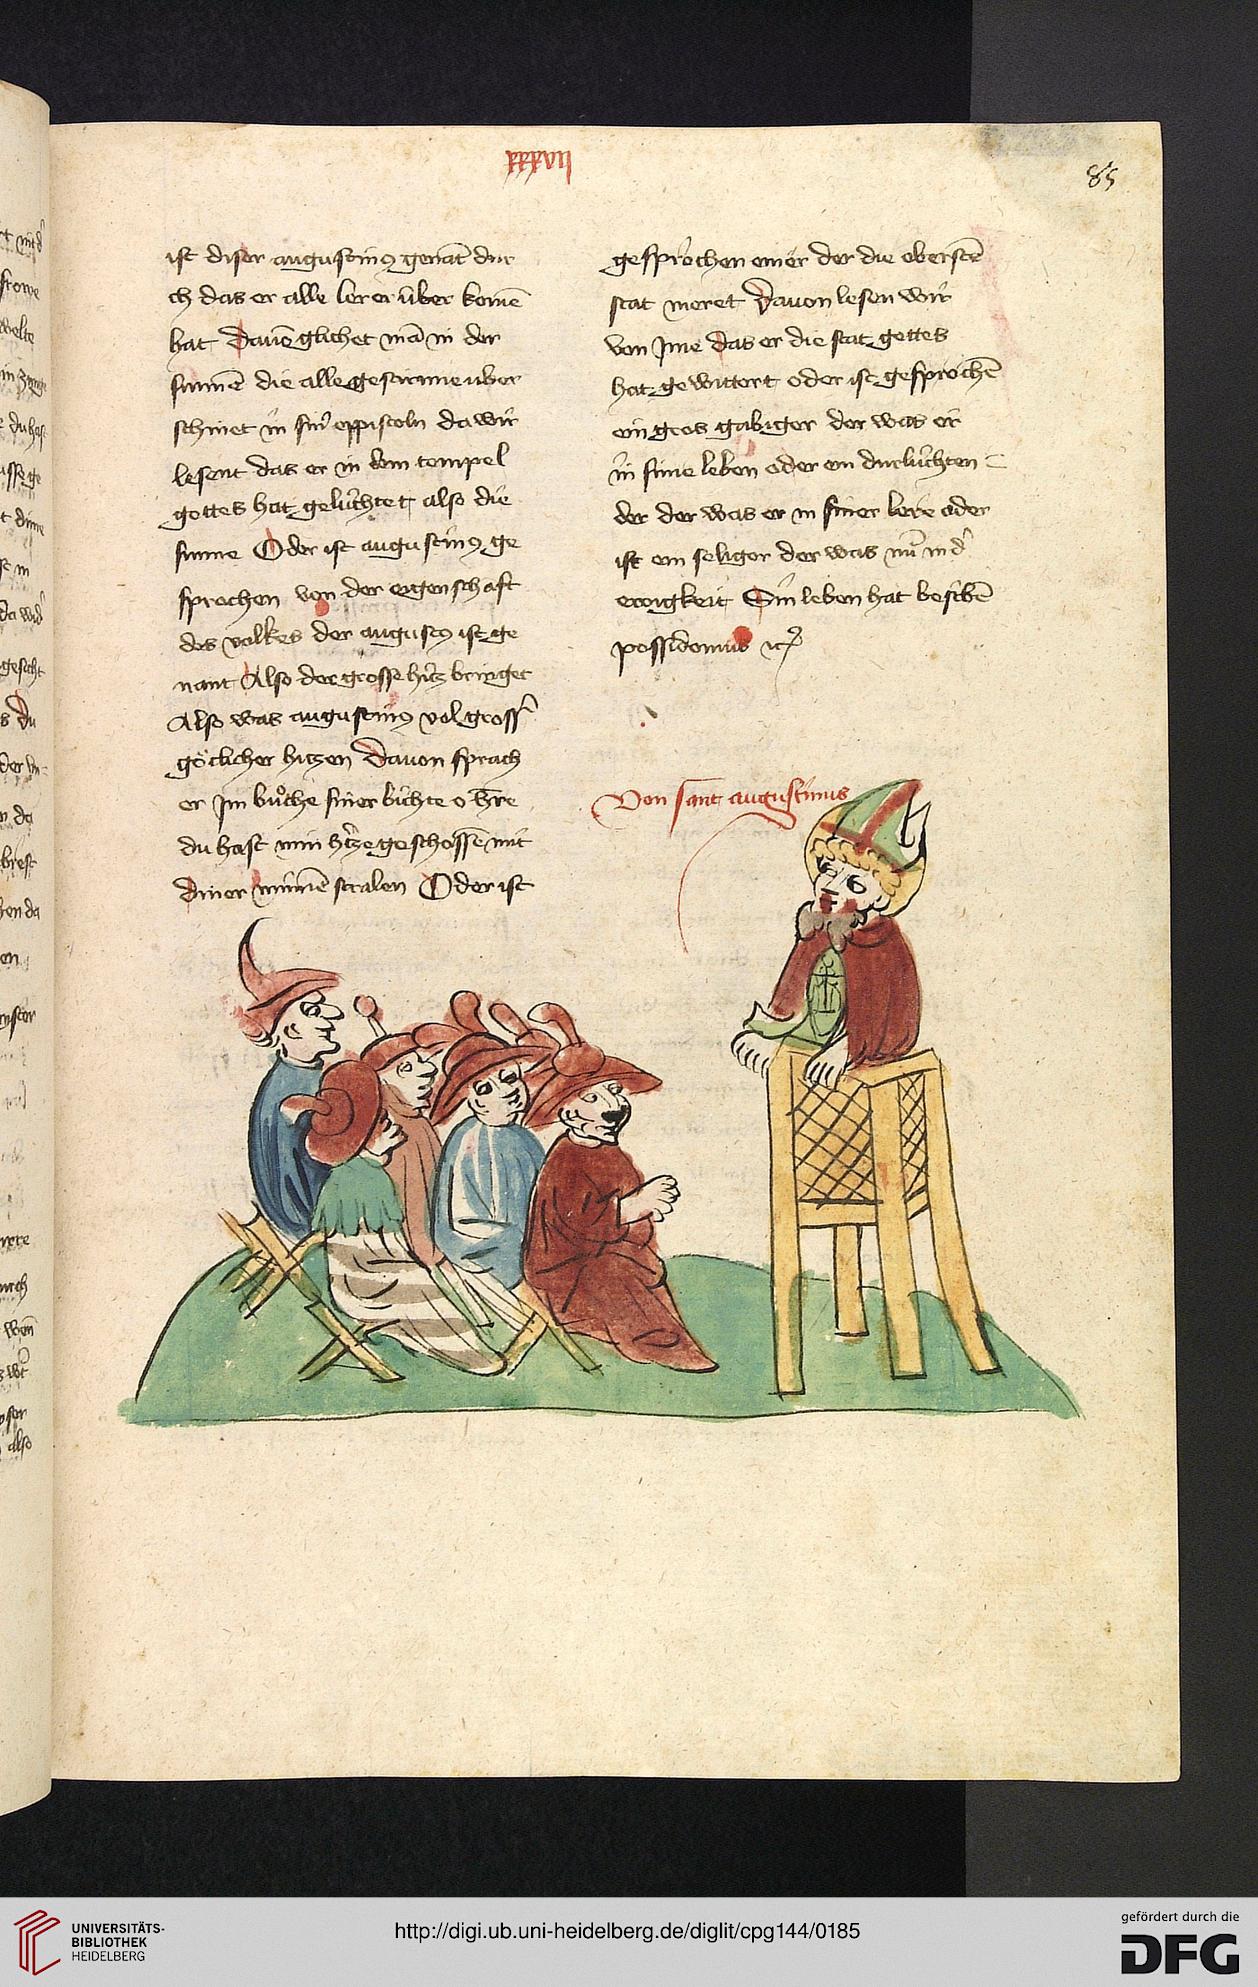 xxxvii
85
ist diser augustinꝰ genāt dur
ch das er alle lerer uͤber komē
hat Dauō glichet mā in der
sunnē die alle gestirnne uͤber
schinet in sinͤ eppistoln da wir
lesent das er in dem tempel
gottes hat geluͤchtet also die
sunne Oder ist augustinꝰ ge
sprochen von der eigenschaft
des volkes der augustꝰ ist ge
nant Also der grosse hitz bringet
Also was augustinꝰ vol grossˀ
goͤtlicher hitzen Dauon sprach
er Im buͦche siner bichte o hˀre
du hast min hˀtze geschossē mit
diner minnē stralen Oder ist
gesprochen einer der die oberstē
stat meret Dauon lesen wir
von Ime das er die stat gottes
hat gewittert oder ist gesprochē
ein gros gabiger der was er
in sime leben oder ein durluͤchten
der der was er in siner lere oder
ist ein seliger der was nuͤ in dˀ
ewigkeit Sin leben hat beschˀbē
possidonius ꝛcͣ
Von sant augustinus
UNIVERSITÄTS-
BIBLIOTHEK
HEIDELBERG
http://digi.ub.uni-heidelberg.de/diglit/cpg144/0185
gefördert durch die
DFG